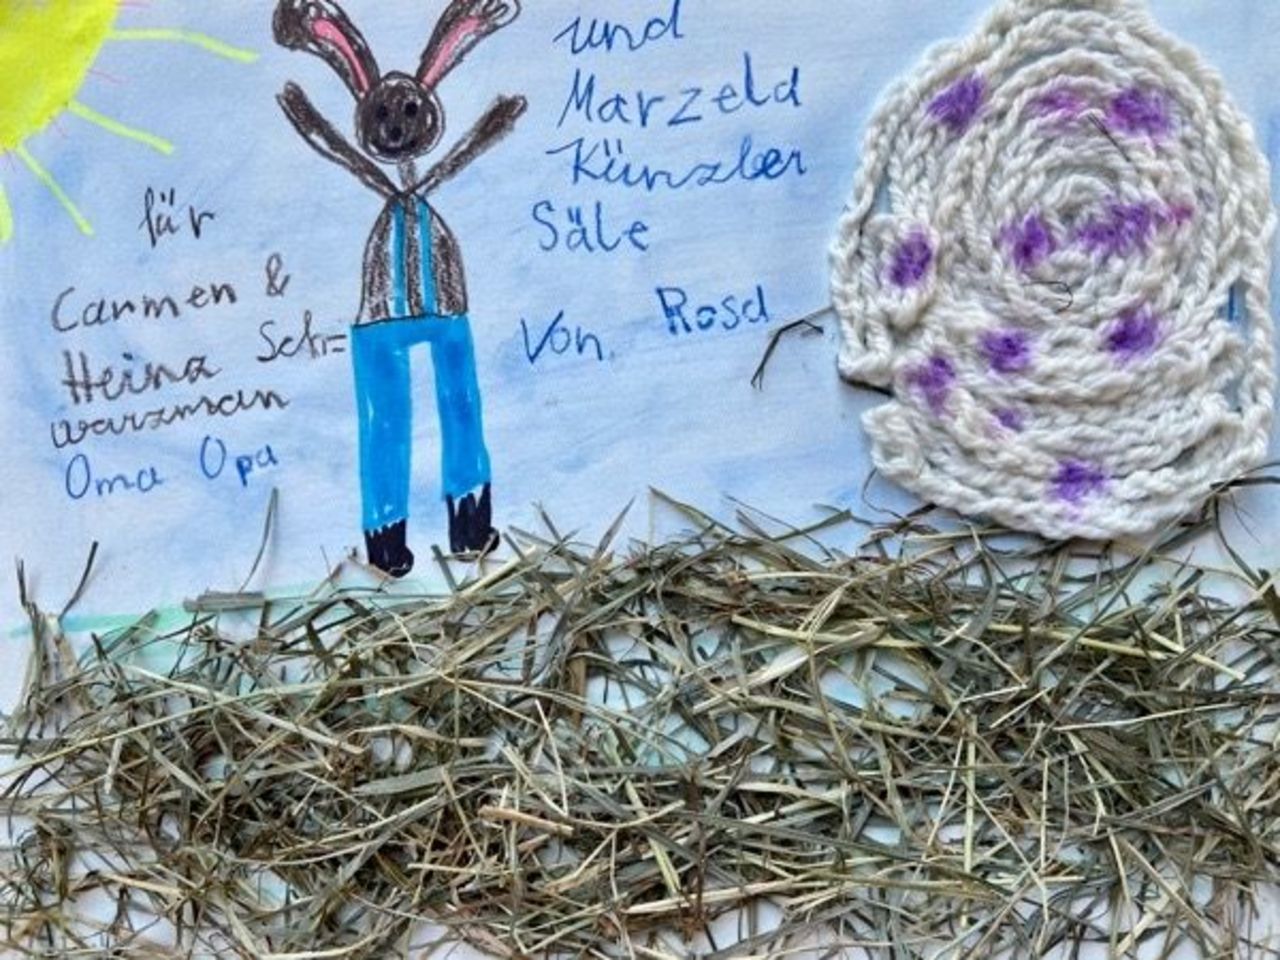 für
Carmen &
Heinz Sch=
warzman
Oma Opa
und
Marzeld
Künzler
Säle
Von Rosa